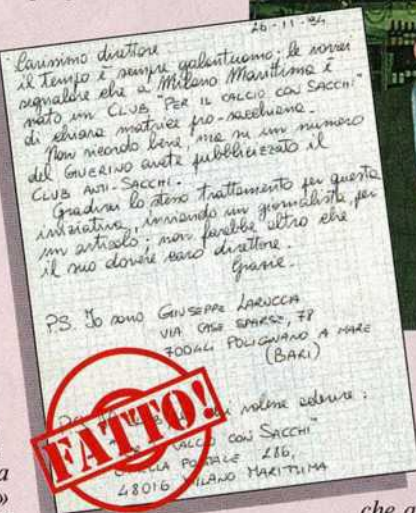 26-11-94
Carissimo direttore
il Tempo è sempre galantuomo: le vorrei
segnalare che a Milano Marittima è
nato un CLUB "PER IL CALCIO CON SACCHI"
di chiara matrice pro-sacchiana.
Non ricordo bene, ma su un numero
del GUERINO avete pubblicizzato il
CLUB ANTI-SACCHI.
Gradirei lo stesso trattamento per questa
iniziativa, inviando un giornalista, per
un articolo; non farebbe altro che
il suo dovere caro direttore.
Grazie.
PS. Io sono GIUSEPPE LARUCCIA
VIA CASE SPARSE, 78
70044 POLIGNANO A MARE
(BARI)
volesse aderire:
CALCIO CON SACCHI"
CASELLA POSTALE 286,
48016 MILANO MARITTIMA
FATTO!
a
»
che a